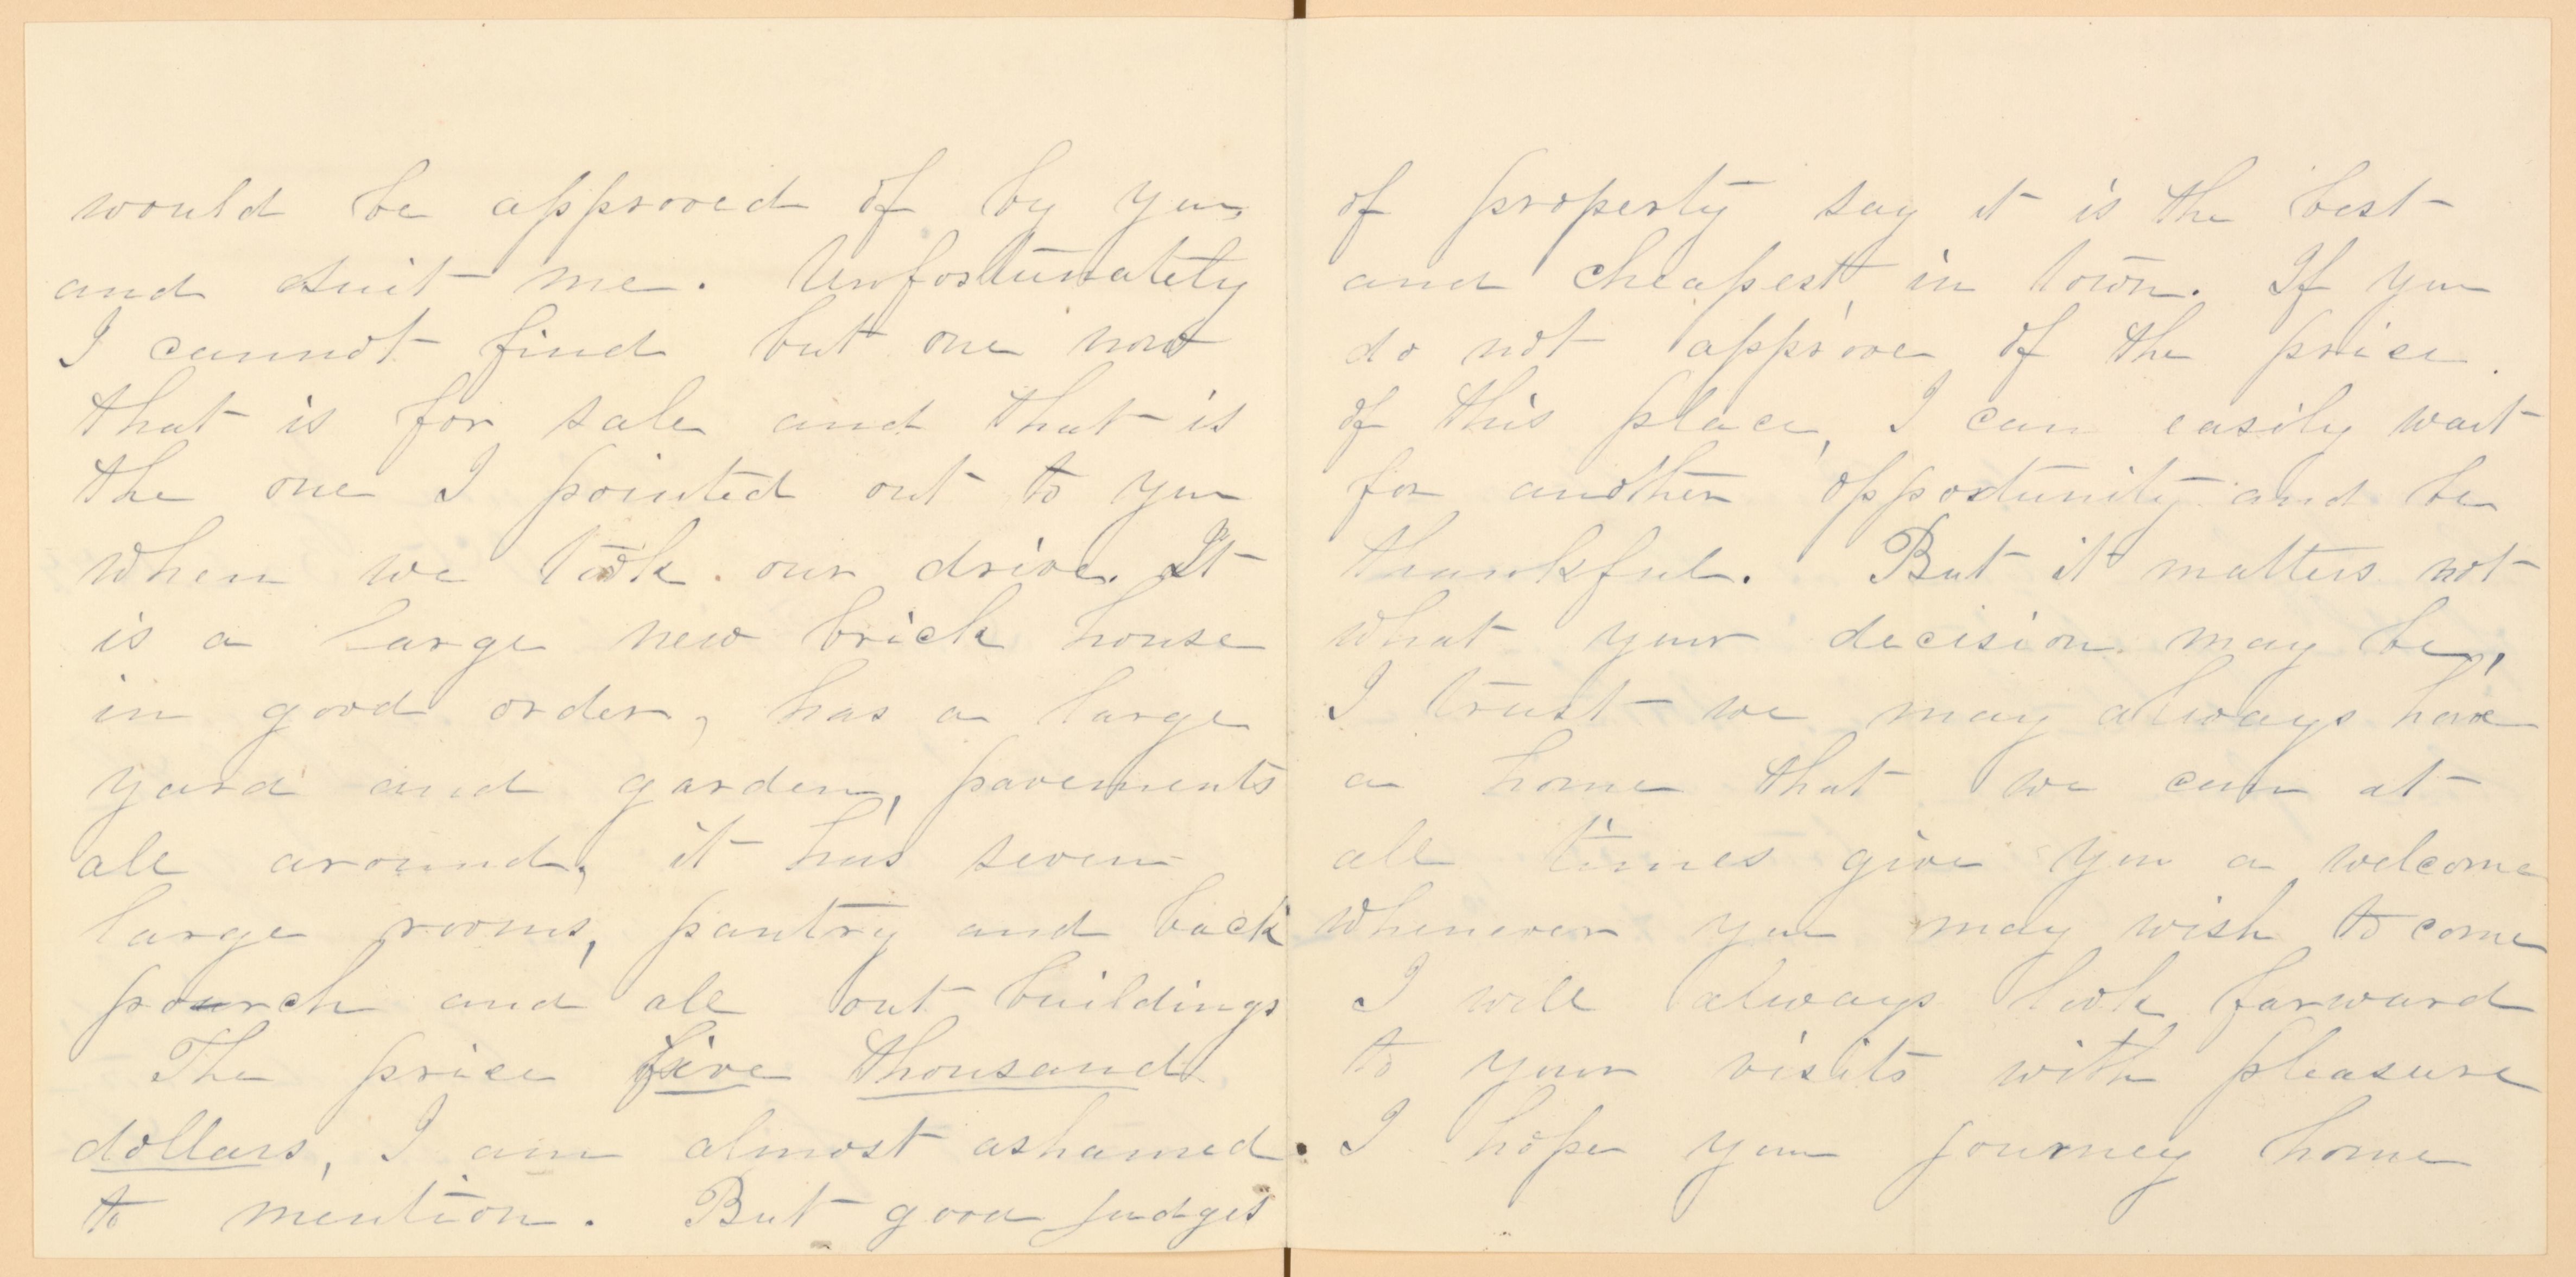 would be approved of by you
and suit me. Unfortunately
I cannot find but one now
that is for sale and that is
the one I pointed out to you
when we took our drive. It
is a large new brick house
in good order, has a large
yard and garden, pavements
all around, it has seven
large rooms, pantry and back
pourch and all out buildings
The price five thousand
dollars, I am almost ashamed
to mention. But good judges
of property say it is the best
and cheapest in town. If you
do not approve of the price
of this place, I can easily wait
for another opportunity and be
thankful. But it matters not
what your decision may be,
I trust we may always have
a home that we can at
all times give you a welcome
whenever you may wish to come
I will always look forward
to your visits with pleasure
I hope your journey home